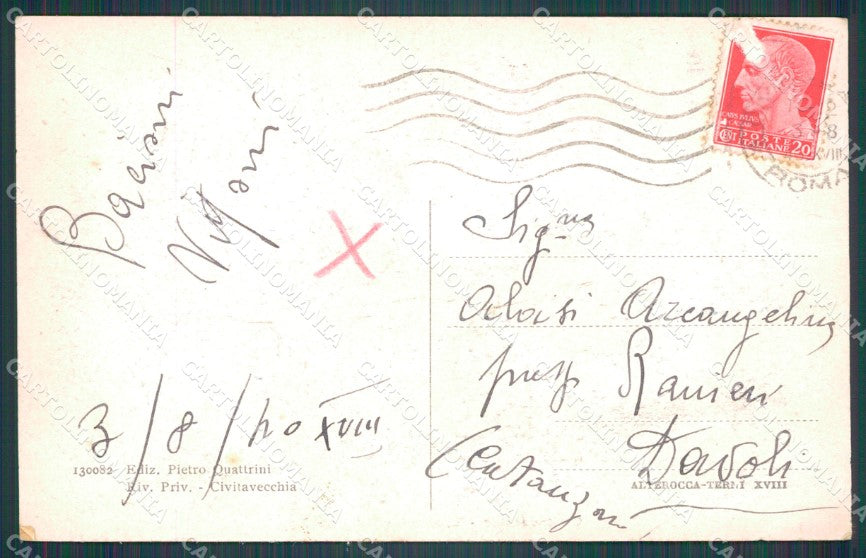 Bacioni
3/8/40 XVIII
130082 Ediz. Pietro Quattrini
Riv. Priv. - Civitavecchia
X
CAIVS IVLIVS
CAESAR
POSTE
ITALIANE
CENT 20
ROMA
Sig.na
Aloisi Arcangelina
presso Ranieri
Davoli
(Catanzaro)
ALTEROCCA-TERNI XVIII
CARTOLINOMANIA